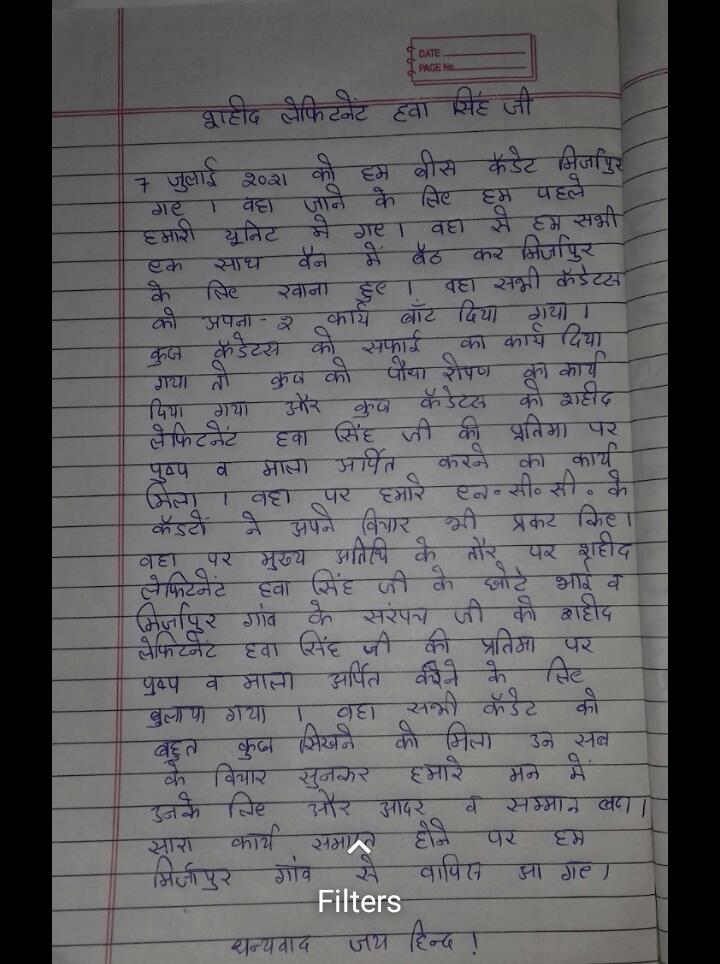 DATE
PAGE No.
शहीद लेफिटनेंट हवा सिंह जी
7 जुलाई २०२१ को हम बीस कैडेट मिर्जापुर
गए । वहा जाने के लिए हम पहले
हमारी यूनिट मे गए । वहा से हम सभी
एक साथ वैन में बैठ कर मिर्जापुर
के लिए रवाना हुए । वहा सभी कॅडेटस
को अपना-२ कार्य बाँट दिया गया ।
कुछ कॅडेटस को सफाई का कार्य दिया
गया तो कुछ को पौधा रोपण का कार्य
दिया गया और कुछ कॅडेटस को शहीद
लेफिटनेंट हवा सिंह जी की प्रतिमा पर
पुष्प व माला अर्पित करने का कार्य
मिला । वहा पर हमारे एन॰सी॰सी॰ के
कॅडटों ने अपने विचार भी प्रकट किए।
वहा पर मुख्य अतिथि के तौर पर शहीद
लेफिटनेंट हवा सिंह जी के छोटे भाई व
मिर्जापुर गांव के सरंपच जी को शहीद
लेफिटनेंट हवा सिंह जी की प्रतिमा पर
पुष्प व माला अर्पित करने के लिए
बुलाया गया । वहा सभी कॅडेट को
बहुत कुछ सिखने को मिला उन सब
के विचार सुनकर हमारे मन में
उनके लिए और आदर व सम्मान बढा।
सारा कार्य समाप्त होने पर हम
मिर्जापुर गांव से वापिस आ गए।
Filters
धन्यवाद जय हिन्द !